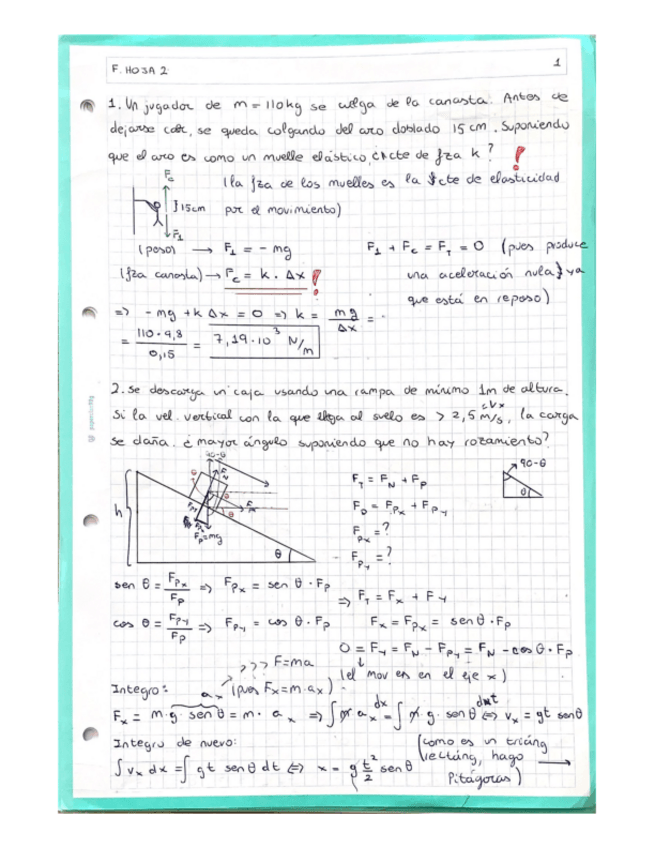 F. HOJA 2
1
1. Un jugador de m = 110kg se cuelga de la canasta. Antes de
dejarse caer, se queda colgando del aro doblado 15 cm. Suponiendo
que el aro es como un muelle elástico, ¿cte de fza k?
Fc
(la fza de los muelles es la cte de elasticidad
15cm
por el movimiento)
F1
(peso) → F1 = - mg
F1 + Fc = FT = 0 (pues produce
(fza canasta) → Fc = k · Δx !
una aceleración nula} ya
que está en reposo)
=> - mg + k Δx = 0 => k = mg / Δx =
= 110 · 9,8 / 0,15 = 7,19 · 10³ N/m
2. Se descarga un caja usando una rampa de mínimo 1m de altura.
Si la vel. vertical con la que llega al suelo es > 2,5 m/s, la carga
se daña. ¿mayor ángulo suponiendo que no hay rozamiento?
90-θ
90-θ
θ
h
Fp=mg
θ
FT = FN + Fp
Fp = Fpx + Fpy
Fpx = ?
Fpy = ?
sen θ = Fpx / Fp => Fpx = sen θ · Fp
=> FT = Fx + Fy
cos θ = Fpy / Fp => Fpy = cos θ · Fp
Fx = Fpx = sen θ · Fp
0 = Fy = FN - Fpy = FN - cos θ · Fp
>>> F=ma
(el mov es en el eje x)
Integro:
ax (pues Fx = m · ax)
Fx = m · g · sen θ = m · ax => ∫ m ax dx = ∫ m g · sen θ dt <=> vx = gt sen θ
Integro de nuevo:
(como es un triáng
rectáng, hago
Pitágoras)
∫ vx dx = ∫ gt sen θ dt <=> x = g t²/2 sen θ